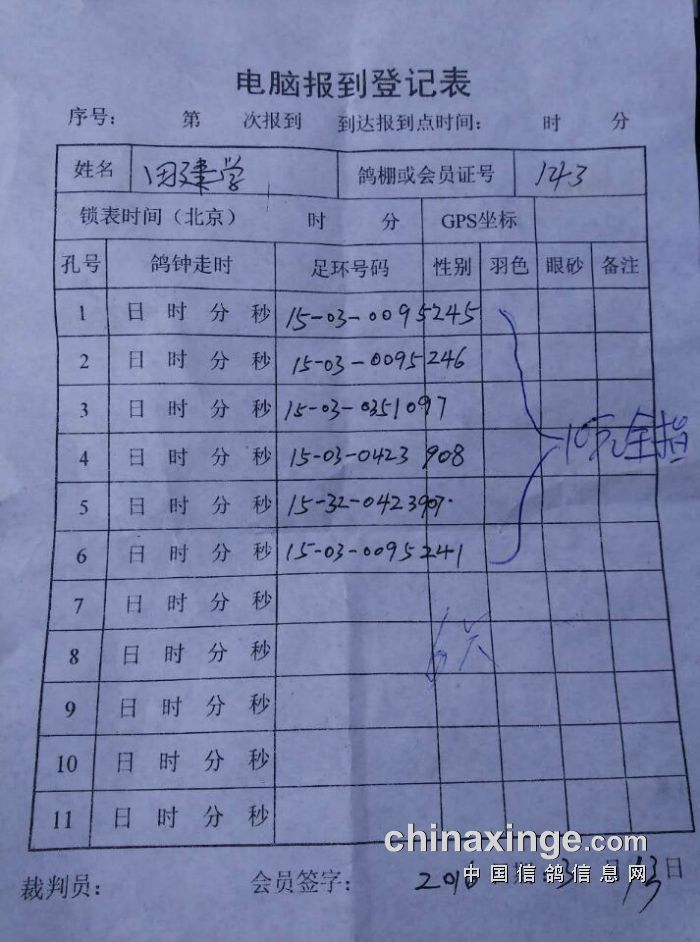 电脑报到登记表
序号： 第 次报到 到达报到点时间： 时 分
姓名 田建学 鸽棚或会员证号 143
锁表时间（北京） 时 分 GPS坐标
孔号 鸽钟走时 足环号码 性别 羽色 眼砂 备注
1 日 时 分 秒 15-03-0095245
2 日 时 分 秒 15-03-0095246
3 日 时 分 秒 15-03-0351097
4 日 时 分 秒 15-03-0423908 10元全指
5 日 时 分 秒 15-32-0423907
6 日 时 分 秒 15-03-0095241
7 日 时 分 秒
8 日 时 分 秒
9 日 时 分 秒
10 日 时 分 秒
11 日 时 分 秒
chinaxinge.com
中国信鸽信息网
裁判员： 会员签字： 2016 3 月 13 日